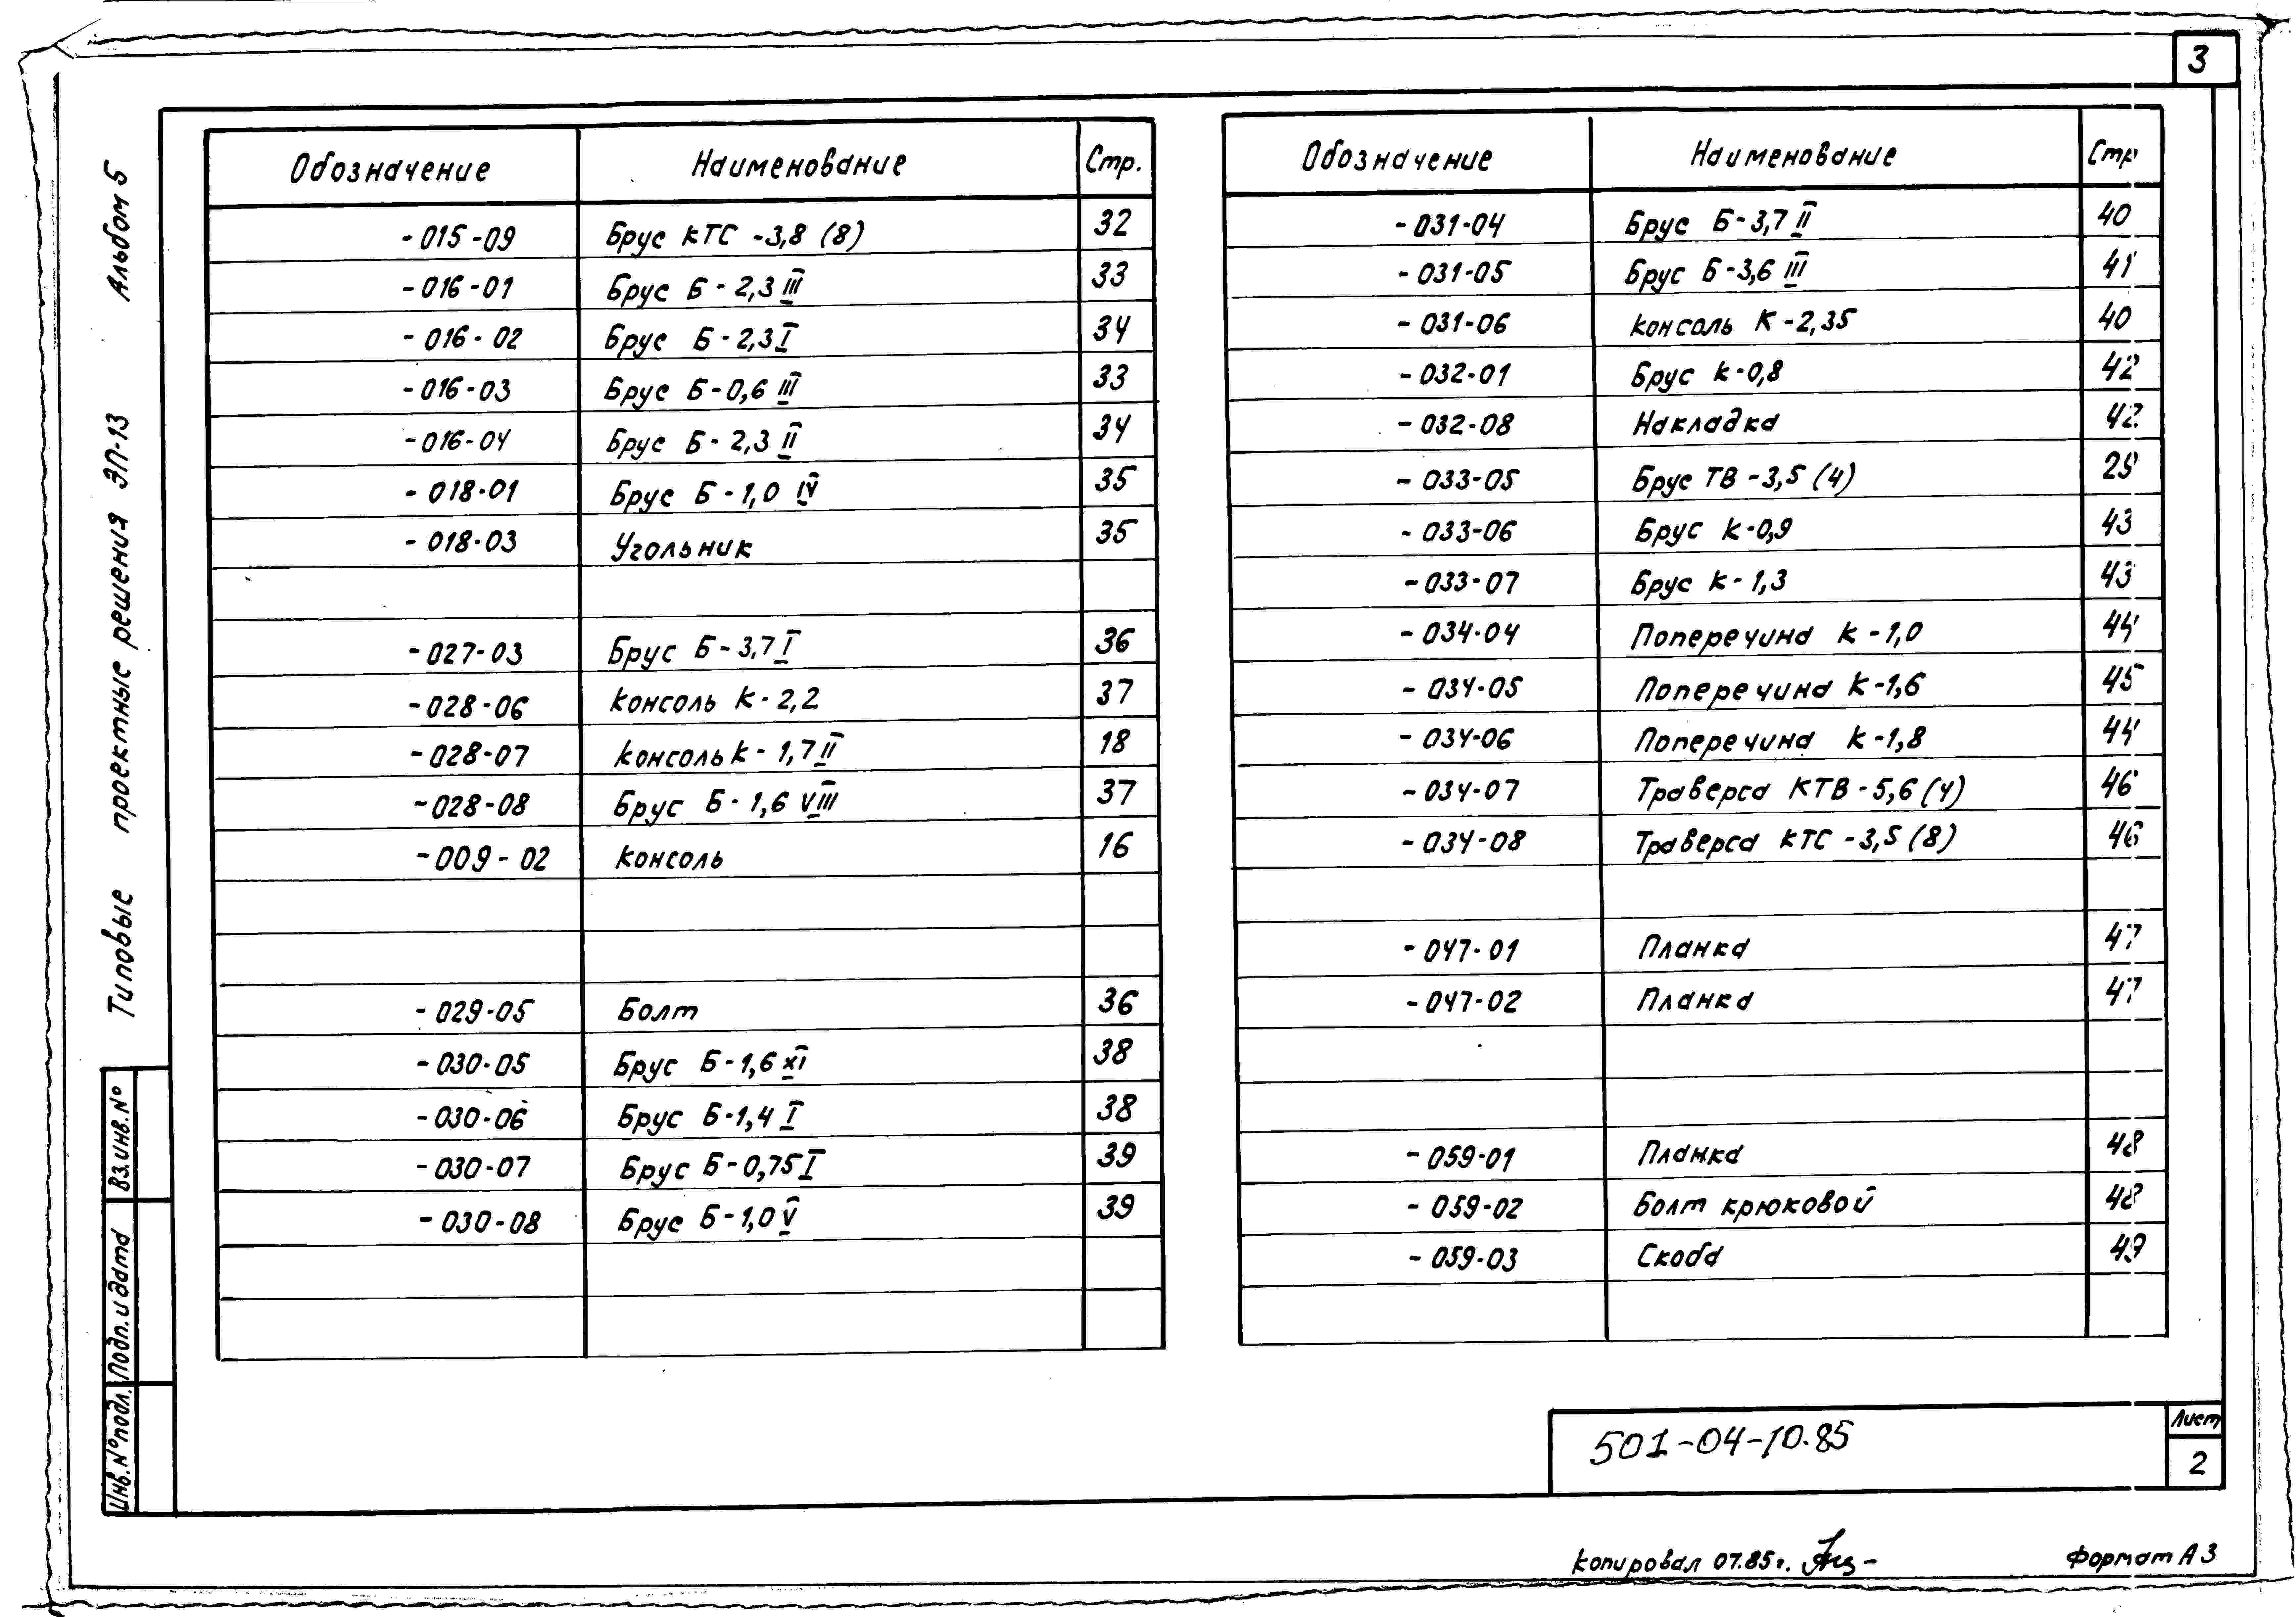 3
Альбом 5
Типовые проектные решения ЭП-13
Обозначение Наименование Стр.
-015-09 Брус КТС-3,8 (8) 32
-016-01 Брус Б-2,3 III 33
-016-02 Брус Б-2,3 I 34
-016-03 Брус Б-0,6 III 33
-016-04 Брус Б-2,3 II 34
-018-01 Брус Б-1,0 IV 35
-018-03 Угольник 35
-027-03 Брус Б-3,7 I 36
-028-06 Консоль К-2,2 37
-028-07 Консоль К-1,7 II 18
-028-08 Брус Б-1,6 VIII 37
-009-02 Консоль 16
-029-05 Болт 36
-030-05 Брус Б-1,6 XI 38
-030-06 Брус Б-1,4 I 38
-030-07 Брус Б-0,75 I 39
-030-08 Брус Б-1,0 V 39
Обозначение Наименование Стр
-031-04 Брус Б-3,7 II 40
-031-05 Брус Б-3,6 III 41
-031-06 Консоль К-2,35 40
-032-01 Брус К-0,8 42
-032-08 Накладка 42
-033-05 Брус ТВ-3,5 (4) 29
-033-06 Брус К-0,9 43
-033-07 Брус К-1,3 43
-034-04 Поперечина К-1,0 44
-034-05 Поперечина К-1,6 45
-034-06 Поперечина К-1,8 44
-034-07 Траверса КТВ-5,6 (4) 46
-034-08 Траверса КТС-3,5 (8) 46
-047-01 Планка 47
-047-02 Планка 47
-059-01 Планка 48
-059-02 Болт крюковой 48
-059-03 Скоба 49
Вз.инв.№
Подп. и дата
Инв.№подл.
501-04-10.85
Лист
2
Копировал 07.85г.
Формат А3